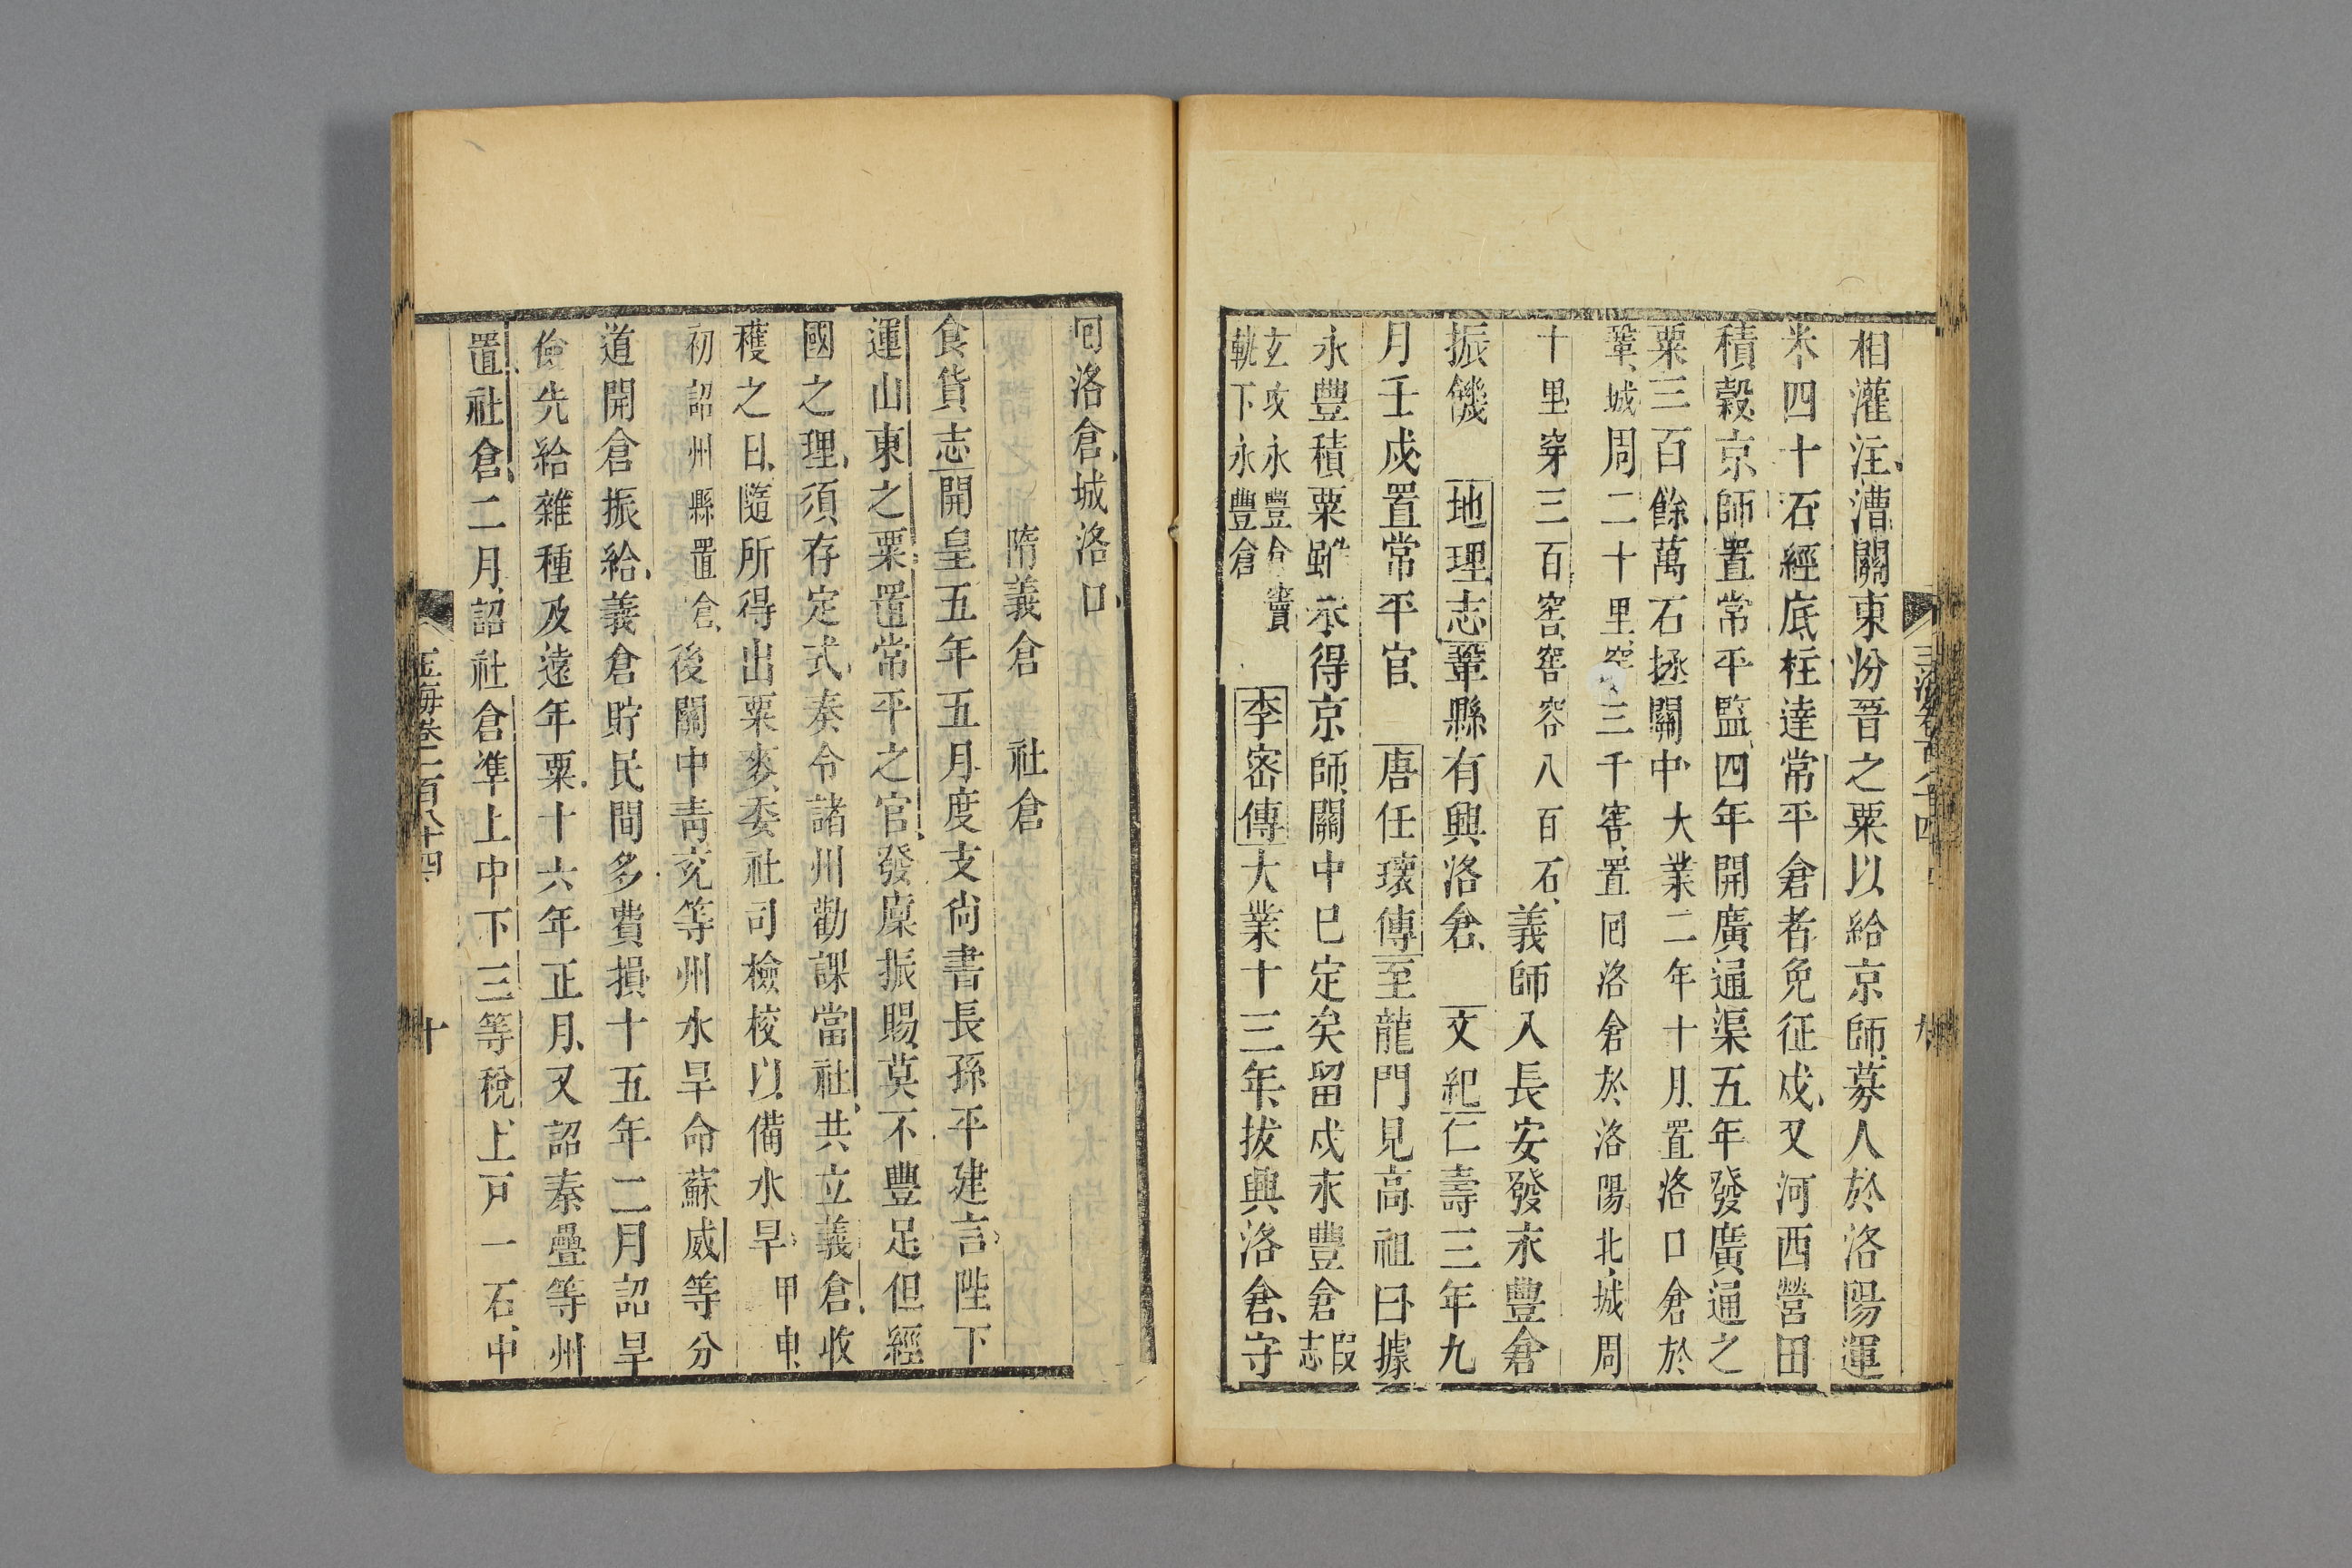 相灌注漕關東汾晉之粟以給京師募人於洛陽運
米四十石經底柱達常平倉者免征戍又河西營田
積穀京師置常平監四年開廣通渠五年發廣通之
粟三百餘萬石拯關中大業二年十月置洛口倉於
鞏城周二十里穿三千窖置囘洛倉於洛陽北城周
十里穿三百窖窖容八百石義師入長安發永豐倉
振饑 地理志鞏縣有興洛倉 文紀仁壽三年九
月壬戌置常平官 唐任瓌傳至龍門見高祖曰據
永豐積粟雖未得京師關中已定矣留戍永豐倉叚志
玄攻永豐倉竇
軌下永豐倉
李密傳大業十三年拔興洛倉守
囘洛倉城洛口
隋義倉 社倉
食貨志開皇五年五月度支尙書長孫平建言陛下
運山東之粟置常平之官發廩振賜莫不豐足但經
國之理須存定式奏令諸州勸課當社共立義倉收
穫之日隨所得出粟麥委社司檢校以備水旱甲申
初詔州縣置倉後關中靑兗等州水旱命蘇威等分
道開倉振給義倉貯民間多費損十五年二月詔旱
儉先給雜種及遠年粟十六年正月又詔秦疊等州
置社倉二月詔社倉準上中下三等稅上戸一石中
玉海卷二百八十四
十